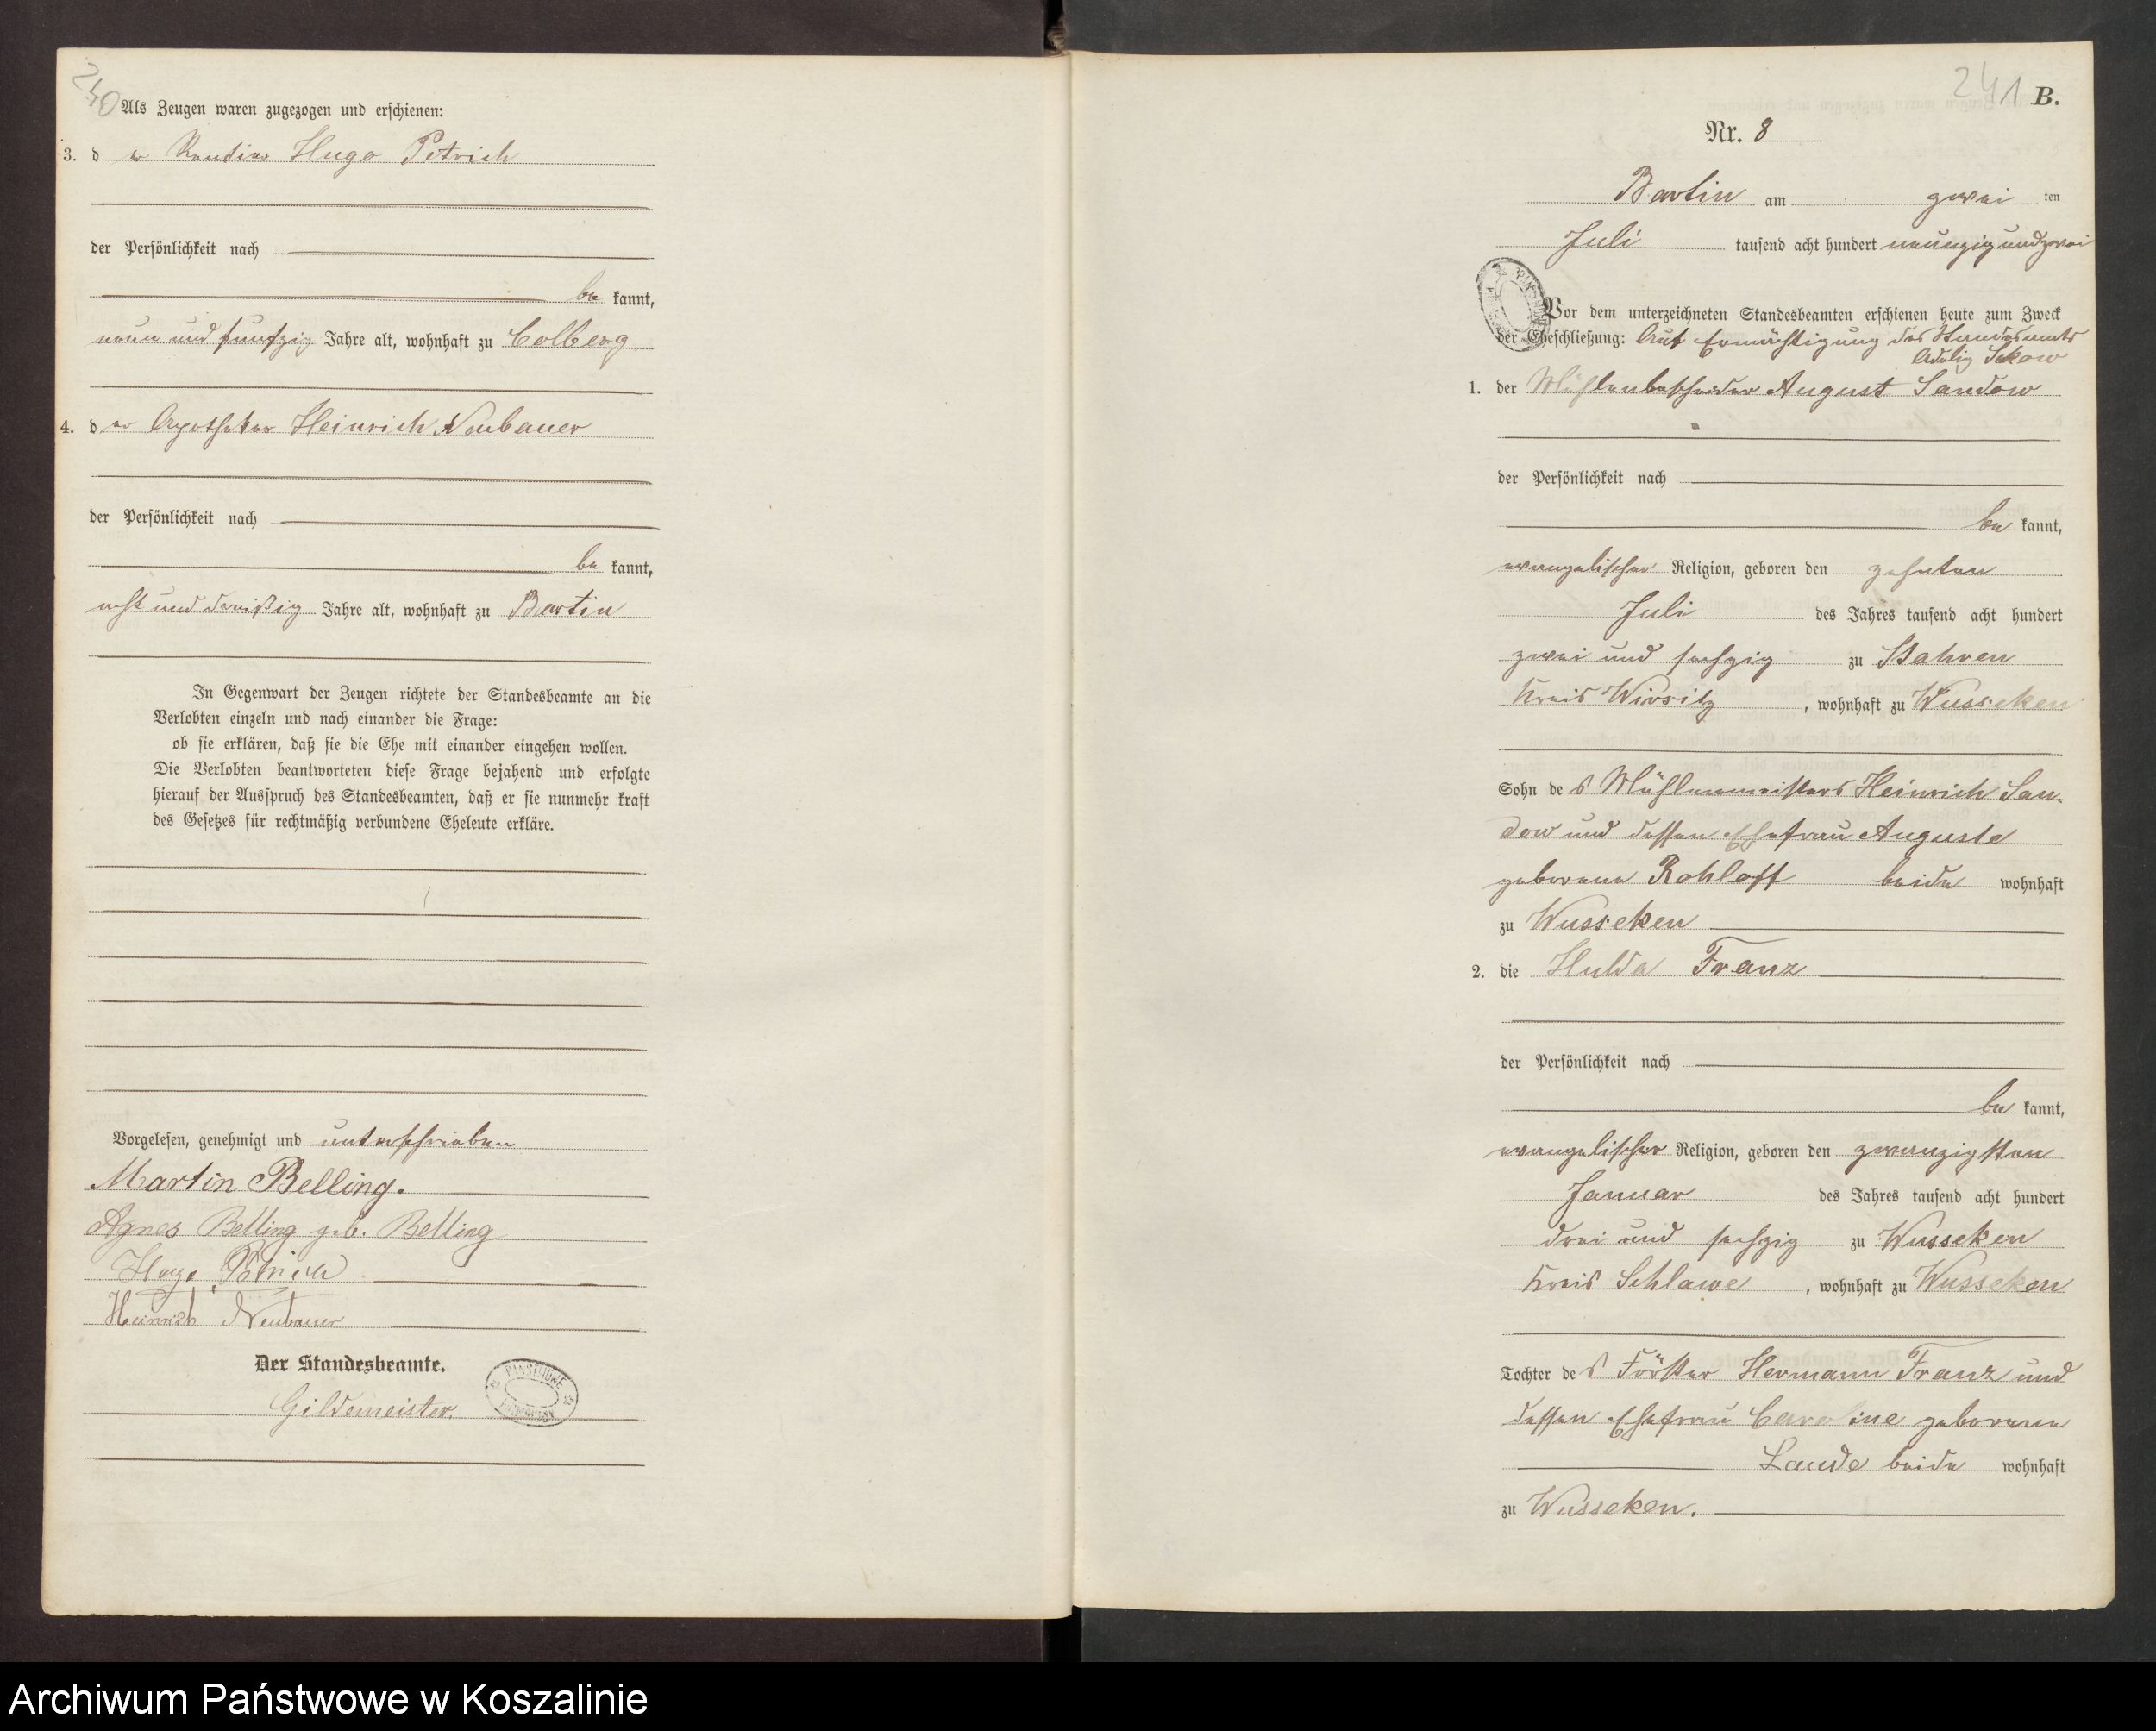 240
Als Zeugen waren zugezogen und erschienen:
3. der Rentier Hugo Petrich
der Persönlichkeit nach
be kannt,
neun und funfzig Jahre alt, wohnhaft zu Colberg
4. der Apotheker Heinrich Neubauer
der Persönlichkeit nach
be kannt,
acht und dreißig Jahre alt, wohnhaft zu Bartin
In Gegenwart der Zeugen richtete der Standesbeamte an die
Verlobten einzeln und nach einander die Frage:
ob sie erklären, daß sie die Ehe mit einander eingehen wollen.
Die Verlobten beantworteten diese Frage bejahend und erfolgte
hierauf der Ausspruch des Standesbeamten, daß er sie nunmehr kraft
des Gesetzes für rechtmäßig verbundene Eheleute erkläre.
Vorgelesen, genehmigt und unterschrieben
Martin Belling.
Agnes Belling geb. Belling
Hugo Petrich
Heinrich Neubauer
Der Standesbeamte.
Gildemeister.
241 B.
Nr. 8
Bartin am zwei ten
Juli tausend acht hundert neunzig und zwei
Vor dem unterzeichneten Standesbeamten erschienen heute zum Zweck
der Eheschließung: Auf Ermächtigung des Standesamts
Adelig
1. der Mühlenbescheider August Sandow
der Persönlichkeit nach
be kannt,
evangelischer Religion, geboren den zehnten
Juli des Jahres tausend acht hundert
zwei und sechzig zu Stahren
Kreis Wirsitz, wohnhaft zu Wusseken
Sohn des Mühlenmeisters Heinrich San-
dow und dessen Ehefrau Auguste
geborene Rohloff beide wohnhaft
zu Wusseken
2. die Hulda Franz
der Persönlichkeit nach
be kannt,
evangelischer Religion, geboren den zwanzigsten
Januar des Jahres tausend acht hundert
drei und sechzig zu Wusseken
Kreis Schlawe, wohnhaft zu Wusseken
Tochter des Förster Hermann Franz und
dessen Ehefrau Caroline geborene
beide wohnhaft
zu Wusseken.
Archiwum Państwowe w Koszalinie